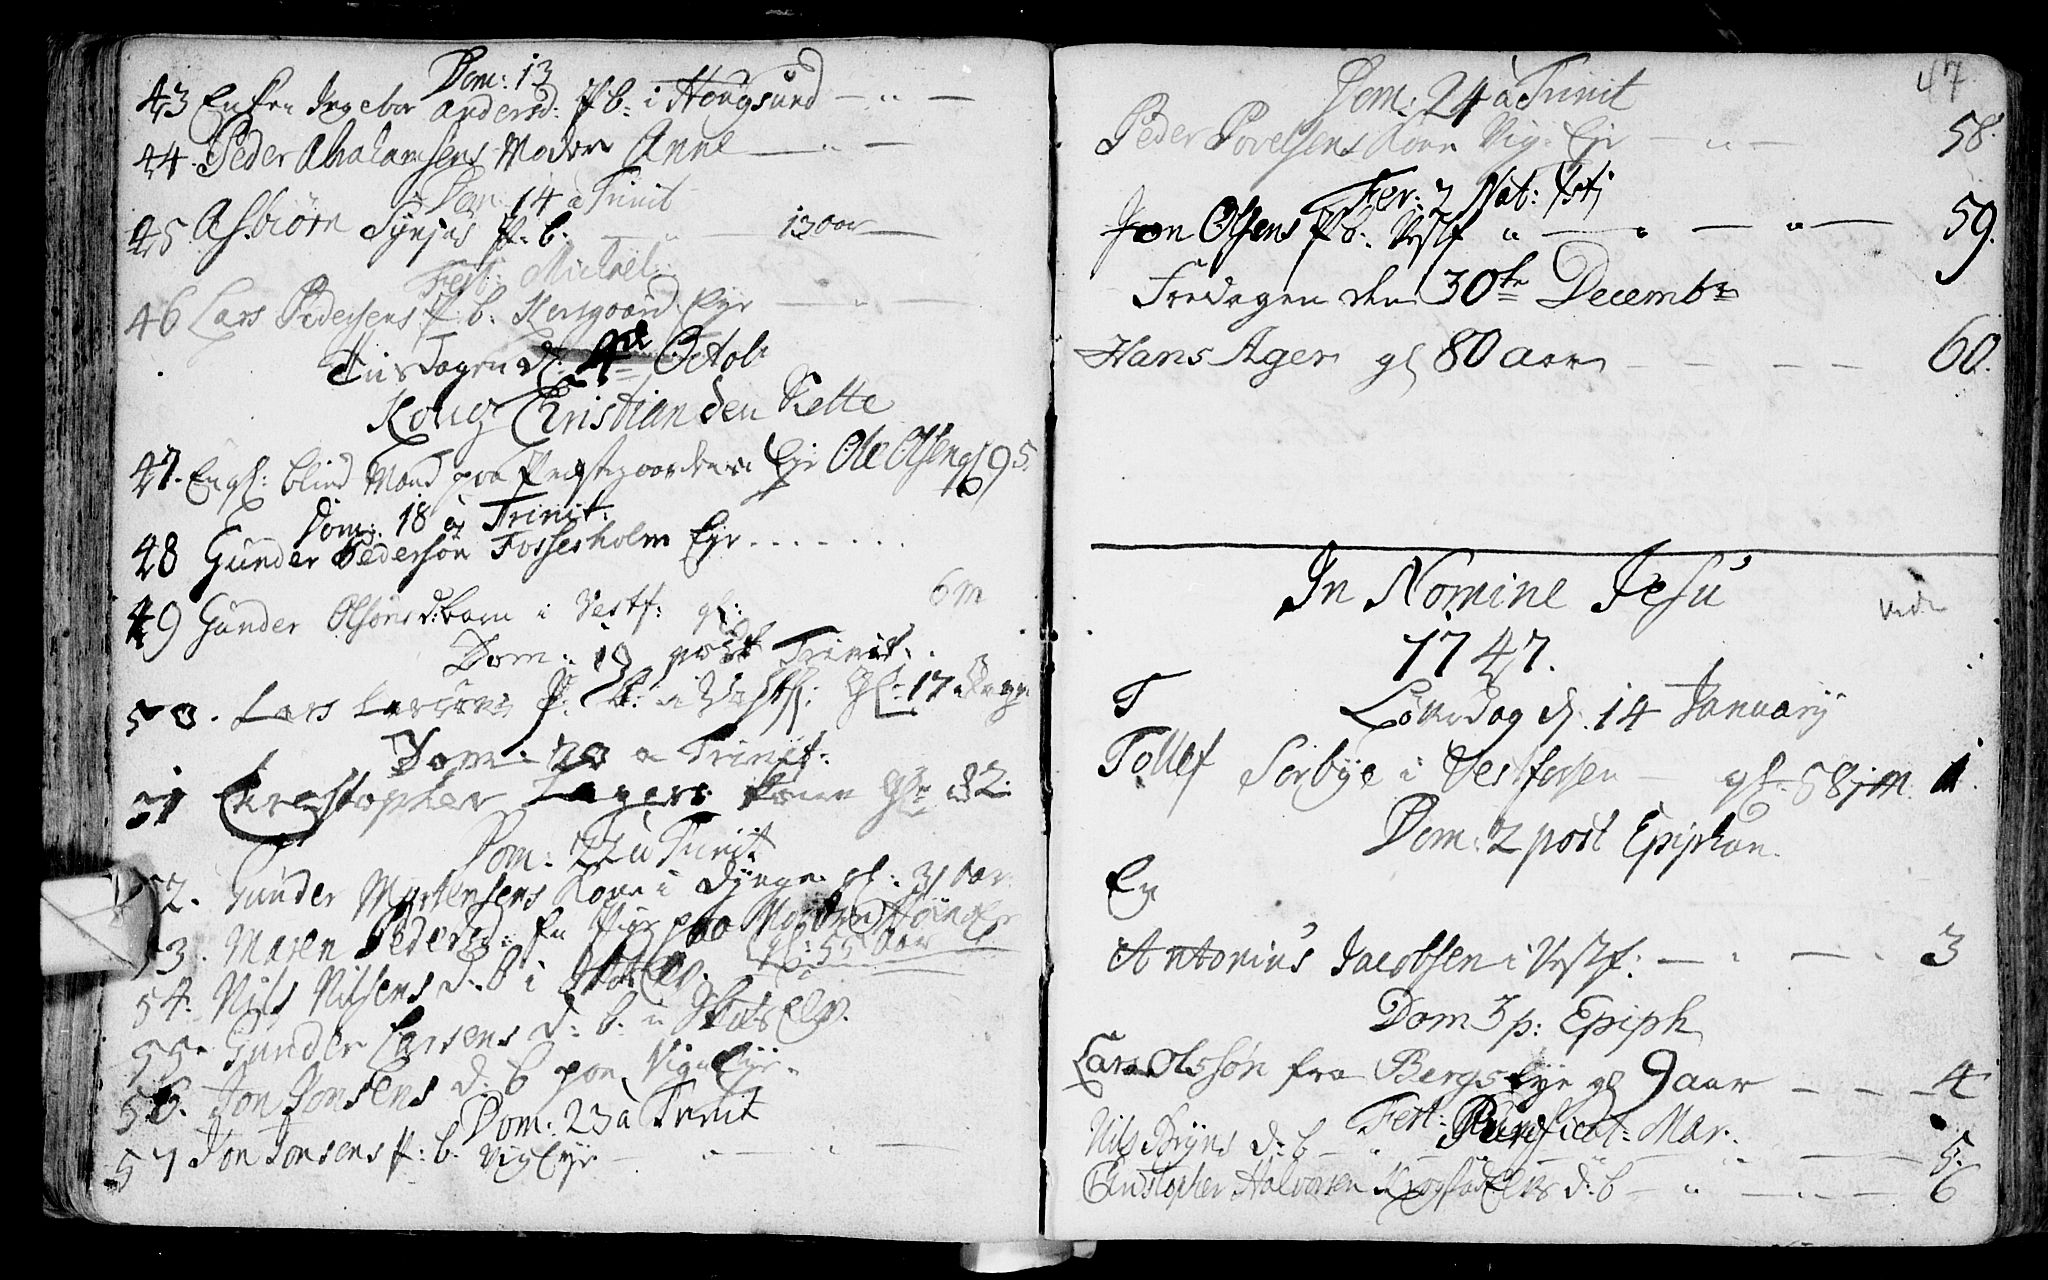 Dom: 13
43 Enken Ingebor Andersd: P b: i Hougsund — " —
44. Peder Abrahamsens Moder Anne — " —
Dom: 14 a Trinit
45. Asbiörn P: b. — " — 13 aar —
Fest: Michael:
46 Lars Pedersens P: b. Eyr — " —
Tirsdagen d: 4de Octob
Kong Christian den Siette
47. En gl: blind Mand paa Præstegaardens Eje Ole Olsen gl 95.
Dom: 18 a Trinit:
48 Gunder Pederson Fossesholm Eyr . . . . . . .
49 Gunder Olsöns d: barn i Vestf: gl: 6 m
Dom: 19 post Trinit:
50. Lars Larsöns P: b: i Vestf: Gl: 17 Dage
Dom: 20 a Trinit:
51 Chrestopher Lagers kone Gl: 82.
Dom: 22 a Trinit
52. Gunder Mortensens Kone i gl: 31 aar.
53. Maren Pedersd: En Pige paa
gl: 55 aar
54. Nils Nilsens d: b i
55. Gunder Larsens d: b. i
56. Jon Jonsens d: b paa Vig Eyr.
Dom: 23 a Trinit
57 Jon Jonsens P: b. Vig Eyr — " —
47
Dom: 24 a Trinit
Peder Povelsens Kone Vig. Eje — " — 58.
Fer: 2 Nat: Xsti
Joen Olsens P b: Vestf " — " — " — 59.
Fredagen den 30te Decembr
Hans Ager gl 80 aar — — — 60.
In Nomine Jesu
1747.
T Löverdag d. 14 January
Tollef Sorbye i Vestfossen — gl: 58 1.
Dom: 2 post Epiphan.
En
Antonius Jacobsen i Vestf: — . — . 3
Dom 3 p: Epiph
Lars Olssön fra Bergsbye gl 9 aar — — 4
Fest: Purificat: Mar:
Nils Bryns d: b — " — 5.
Christopher Halvorsen d: b — " — 6